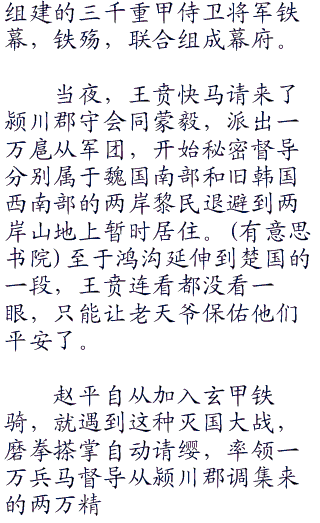 组建的三千重甲侍卫将军铁
幕，铁殇，联合组成幕府。
当夜，王贲快马请来了
颍川郡守会同蒙毅，派出一
万扈从军团，开始秘密督导
分别属于魏国南部和旧韩国
西南部的两岸黎民退避到两
岸山地上暂时居住。(有意思
书院) 至于鸿沟延伸到楚国的
一段，王贲连看都没看一
眼，只能让老天爷保佑他们
平安了。
赵平自从加入玄甲铁
骑，就遇到这种灭国大战，
磨拳搽掌自动请缨，率领一
万兵马督导从颍川郡调集来
的两万精